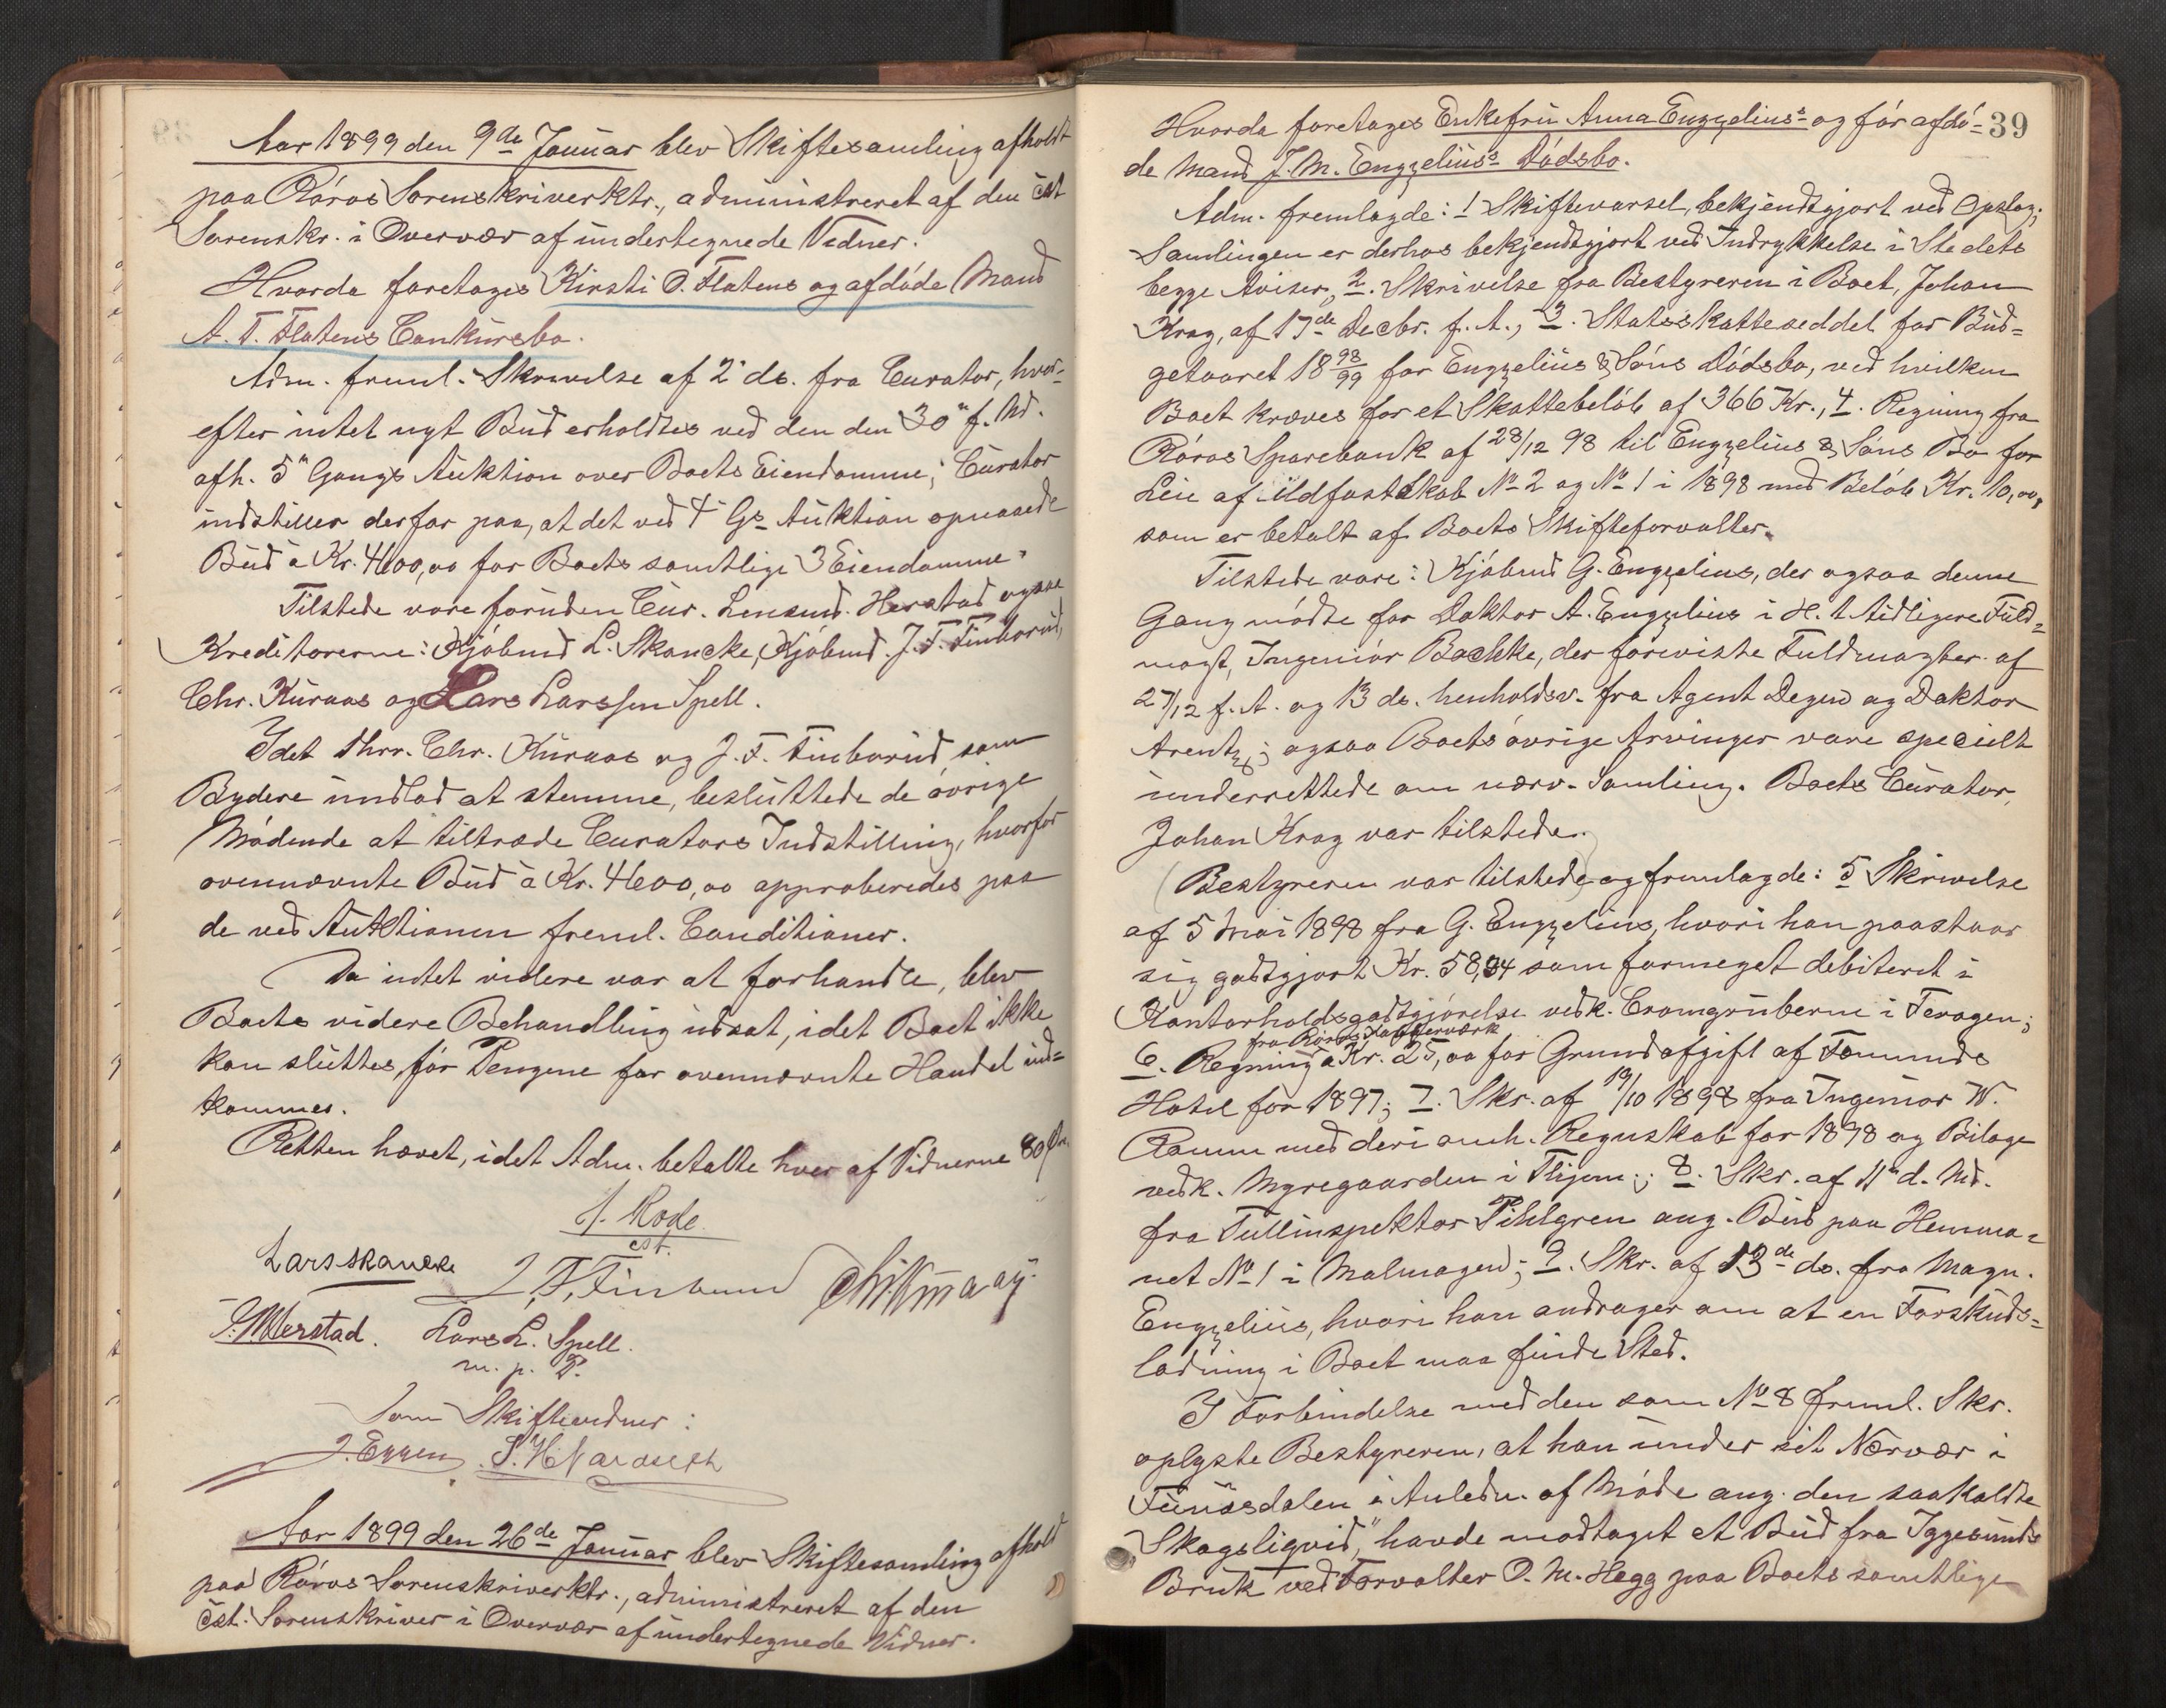 Aar 1899 den 9de Januar blev Skiftesamling afholdt
paa Röros Sorenskriverktr., administreret af den cst
Sorenskr. i Overvær af undertegnede Vidner.
Hvorda foretages Kirsti O. Flatens og afdöde Mand
A. T. Flatens Concursbo.
Adm. freml. Skrivelse af 2 ds. fra Curator, hvor-
efter intet nyt Bud erholdtes ved den den 30" f. Md.
afh. 5" Gangs Auktion over Boets Eiendomme; Curator
indstiller derfor paa, at det ved 4" Gs Auktion opnaaede
Bud à Kr. 4600,00 for Boets samtlige 3 Eiendomme.
Tilstede vare foruden Cur. Lensmd. Herstad ogsaa
Kreditorerne: Kjöbmd L. Skancke, Kjöbmd. J. F. Finborud,
Chr. Kuraas og Lars Larssen Spell.
Idet Dhrr. Chr. Kuraas og J. F. Finborud som
Bydere undlod at stemme, besluttede de övrige
Mödende at tiltræde Curators Indstilling, hvorfor
ovennævnte Bud à Kr. 4600,00 approberedes paa
de ved Auktionen freml. Conditioner.
Da intet videre var at forhandle, blev
Boets videre Behandling udsat, idet Boet ikke
kan sluttes, för Pengene for ovennævnte Handel ind-
kommer.
Retten hævet, idet Adm. betalte hver af Vidnerne 80 Öre.
A. Rode
cst.
Lars Skancke J. F. Finborud
Herstad. Lars L. Spell.
m. p. P.
Som Skiftevidner:
J. Eggen.
Aar 1899 den 26de Januar blev Skiftesamling afhold
paa Röros Sorenskriverktr., administreret af den
cst. Sorenskriver i Overvær af undertegnede Vidner.
39
Hvorda foretages Enkefru Anna Engzelius's og för afdö-
de Mand J. M. Engzelius's Dödsbo.
Adm. fremlagde: 1 Skiftevarsel, bekjendtgjort ved Opslag;
Samlingen er derhos bekjendtgjort ved Indrykkelse i Stedets
begge Aviser, 2. Skrivelse fra Bestyreren i Boet, Johan
Krag, af 17de Decbr. f. A., 3. Statsskatteseddel for Bud-
getaaret 1898/99 for Engzelius & Söns Dödsbo, ved hvilken
Boet kræves for et Skattebelöb af 366 Kr., 4. Regning fra
Röros Sparebank af 28/12 98 til Engzelius & Söns Bo for
Leie af ildfast Skab No 2 og No 1 i 1898 med Belöb Kr. 10,00,
som er betalt af Boets Skifteforvalter.
Tilstede vare: Kjöbmd G. Engzelius, der ogsaa denne
Gang mödte for Doktor A. Engzelius i H. t. tidligere Fuld-
magt, Ingeniör Bachke, der foreviste Fuldmagter af
27/12 f. A. og 13 ds. henholdsv. fra Agent Degen og Doktor
Arentz; ogsaa Boets övrige Arvinger vare specielt
underrettede om nærv. Samling. Boets Curator,
Johan Krag var tilstede.
(Bestyreren var tilstede) og fremlagde: 5 Skrivelse
af 5 Mai 1898 fra G. Engzelius, hvori han paastaar
sig godtgjort Kr. 58,34 som formeget debiteret i
Kontorholdsgodtgjörelse vedk. Cromgruberne i Feragen;
fra Röros Kobberværk
6. Regning à Kr. 25,00 for Grundafgift af Fæmunds
Hotel for 1897; 7. Skr. af 19/10 1898 fra Ingeniör W.
Ramm med deri anh. Regnskab for 1898 og Bilage
vedk. Myregaarden i Thjem; 8. Skr. af 11" d. Md.
fra Tullinspektor Pihlgren ang. Bud paa Hemma-
net No 1 i Malmagen; 9. Skr. af 13de ds. fra Magn.
Engzelius, hvori han andrager om at en Forskuds-
lodning i Boet maa finde Sted.
I Forbindelse med den som No 8 freml. Skr.
oplyste Bestyreren, at han under sit Nærvær i
Funäsdalen i Anledn. af Möde ang. den saakaldte
"Skogsliqvid," havde modtaget et Bud fra Iggesunds
Bruk ved Forvalter O. M. Hegg paa Boets samtlige